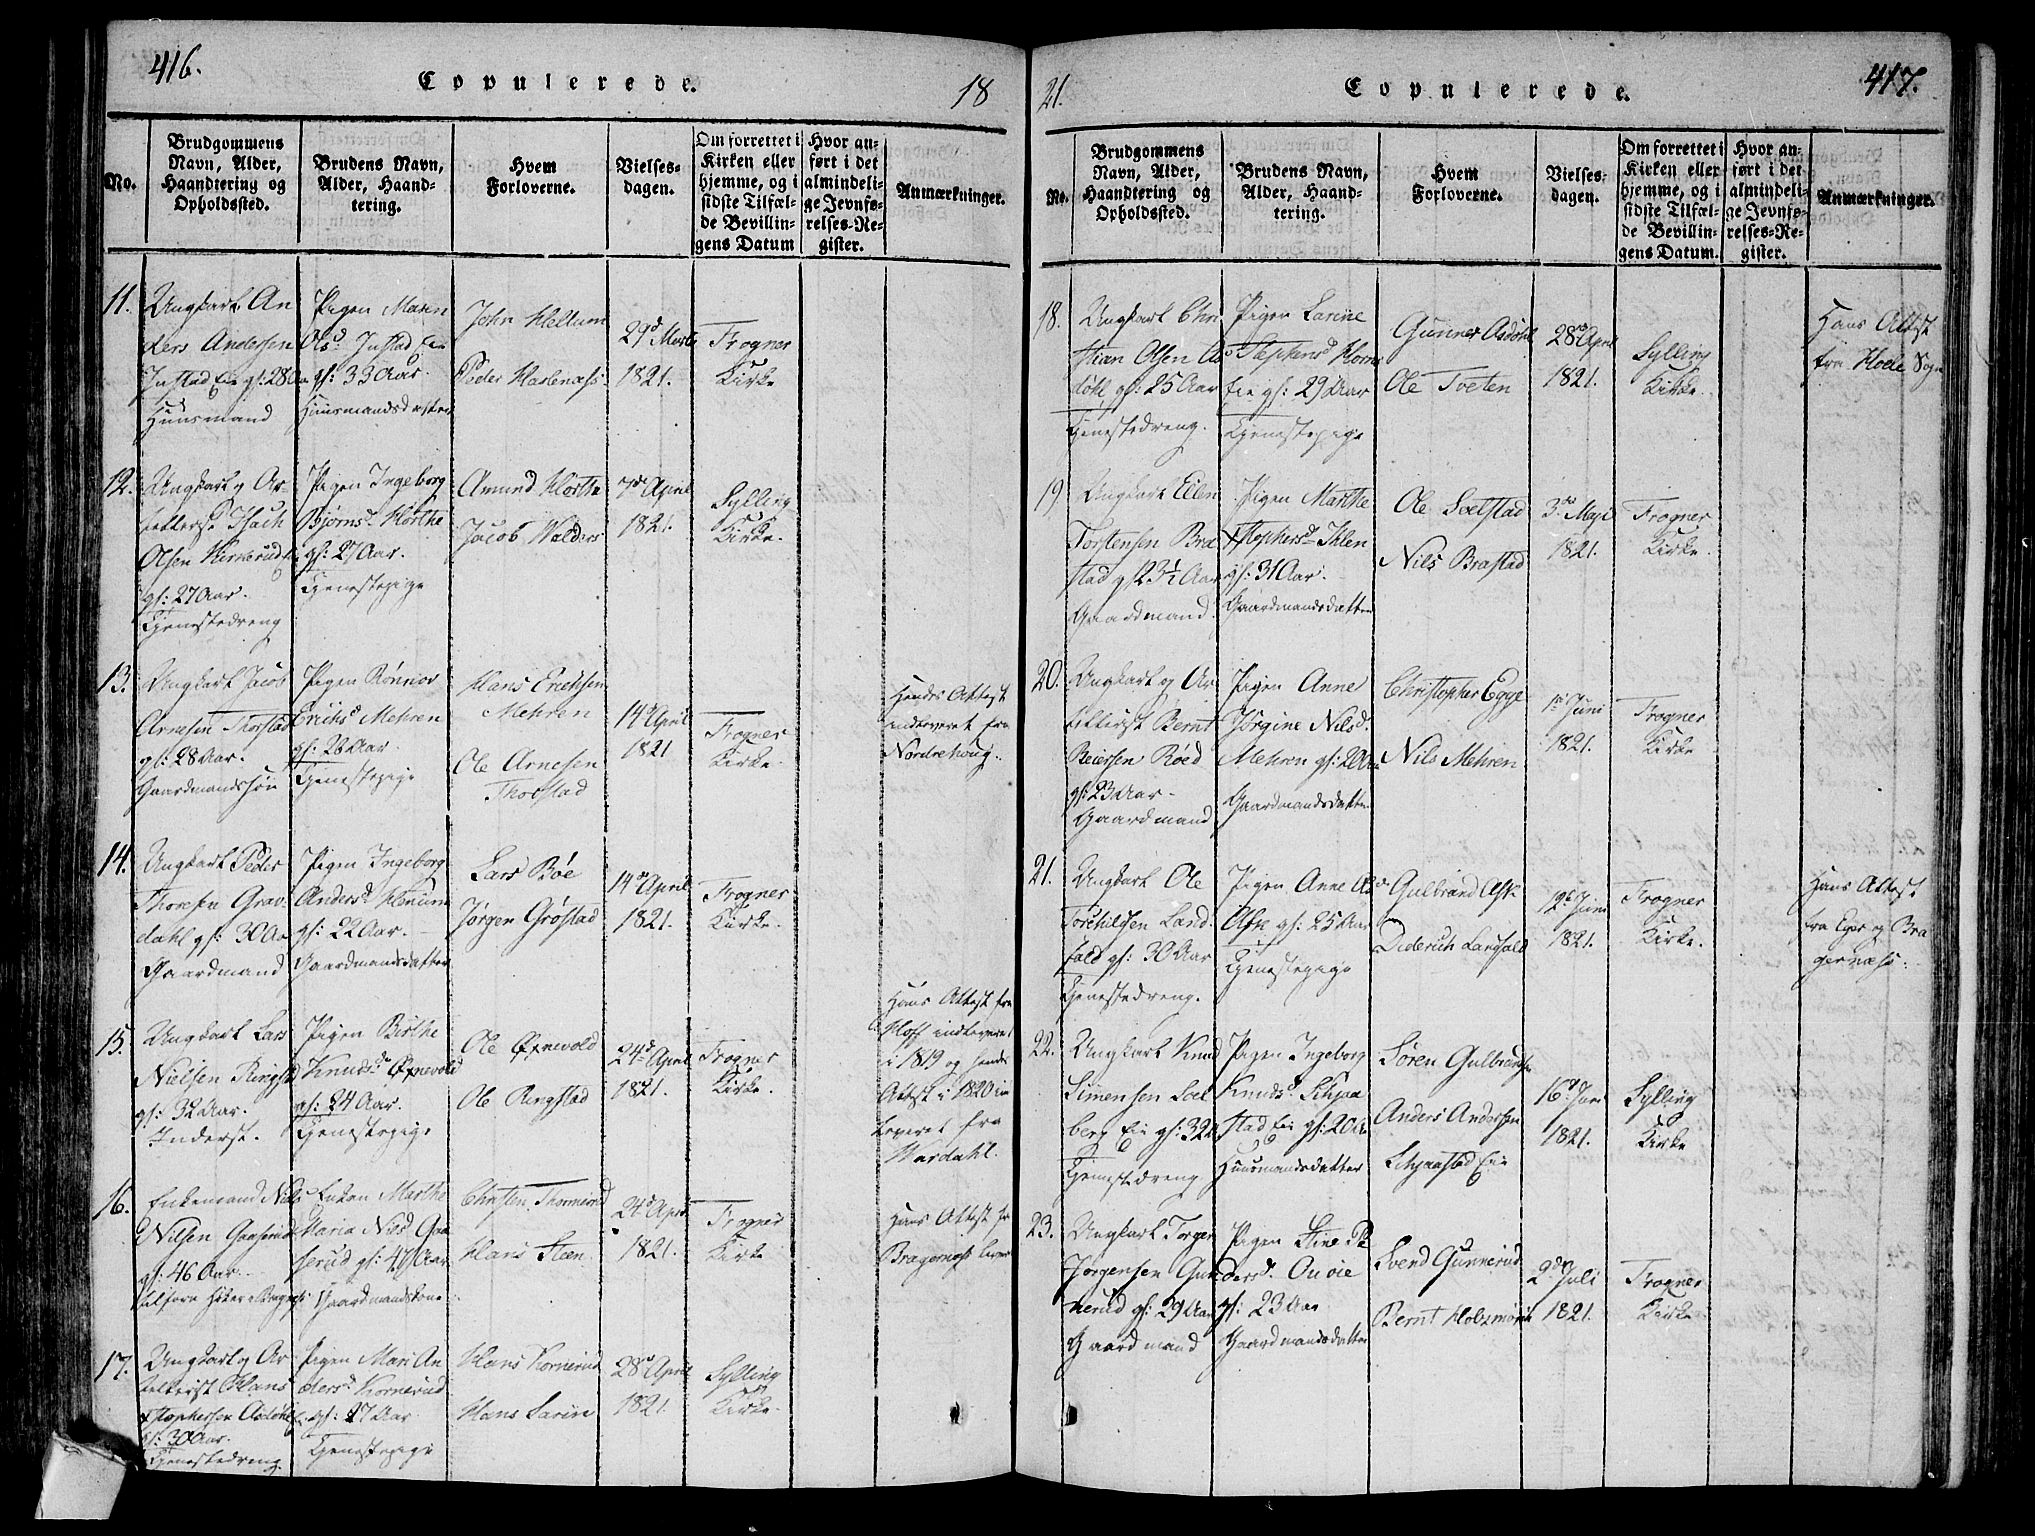 416.
Copulerede.
18
No.
Brudgommens
Navn, Alder,
Haandtering og
Opholdssted.
Brudens Navn,
Alder, Haand-
tering.
Hvem
Forloverne.
Vielses-
dagen.
Om forrettet i
Kirken eller
hjemme, og i
sidste Tilfæl-
de Bevillin-
gens Datum
Hvor an-
ført i det
almindeli-
ge Jevnfø-
relses-Re-
gister.
Anmærkninger.
11.
Ungkarl An
ders Andersen
Justad Eie gl: 28 Aar
Huusmand
Pigen Maren
Olsd. Justad Eie
gl: 33 Aar.
Huusmandsdatter
John Hellum
Peder Haslenæss.
29d Marts
1821.
Frogner
Kirke
12.
Ungkarl og Ar-
tillerist Isach
Olsen
gl: 27 Aar.
Tjenestedreng
Pigen Ingeborg
Bjørnsd. Hørthe
gl: 27 Aar.
Tjenestepige
Amund Hørthe
Jacob Walders
7de April
1821.
Sylling
Kirke.
13.
Ungkarl Jacob
Arnesen Thorstad
gl: 28 Aar.
Gaardmandssøn
Pigen Rønnov
Erichsd Mehren
gl: 26 Aar.
Tjenestepige
Hans Erichsen
Mehren
Ole Arnesen
Thorstad
14d April
1821
Frogner
Kirke.
Hendes Attest
indleveret fra
Nordrehoug.
14.
Ungkarl Peder
Thoresen Grav-
dahl gl: 30 Aar
Gaardmand
Pigen Ingeborg
Andersd Hennum
gl: 22 Aar.
Gaardmandsdatter
Lars Bøe
Jørgen Grøstad
14de April
1821.
Frogner
Kirke.
15.
Ungkarl Lars
Nielsen Ringstad
gl: 32 Aar.
Inderst.
Pigen Birthe
Knudsd Øfnevold
gl: 24 Aar.
Tjenestepige
Ole Øfnevold
Ole Ringstad
24d April
1821.
Frogner
Kirke.
Hans Attest fra
Hoff indleveret
i 1819 og hendes
Attest i 1820 in
leveret fra
Wardahl.
16.
Enkemand Niels
Nilsen Gaaserud
gl: 46 Aar.
Enken Marthe
Maria Nielsd Gaa
serud gl: 47 Aar
Gaardmandskone
Christen Thormerud
Hans Steen
24d Apr.
1821.
Frogner
Kirke
Hans Attest fr
Bragernæss
17.
Ungkarl og Ar
tillerist Hans
Stophersen Asdøhl
gl: 30 Aar.
Tjenestedreng
Pigen Mari An
dersd. Kornerud
gl: 27 Aar
Tjenestepige
Hans Kornerud
Hans Sørin
28de April
1821.
Sylling
Kirke.
21.
Copulerede.
417.
No.
Brudgommens
Navn, Alder,
Haandtering og
Opholdssted.
Brudens Navn,
Alder, Haand-
tering.
Hvem
Forloverne.
Vielses-
dagen.
Om forrettet i
Kirken eller
hjemme, og i
sidste Tilfæl-
de Bevillin-
gens Datum.
Hvor an-
ført i det
almindeli-
ge Jevnfø-
relses-Re-
gister.
Anmærkninger.
18.
Ungkarl Chri
stian Olsen As
døhl gl: 25 Aar
Tjenestedreng.
Pigen Karine
Stephensd Horns
Eie gl: 29 Aar
Tjenestepige
Gunner Asdøhl
Ole Tveten
28de April
1821.
Sylling
Kirke.
Hans Attest
fra Hole Sogn
19
Ungkarl Ellen
Torstensen Bra
stad gl 23½ Aar
Gaardmand.
Pigen Marthe
Stophersd Ihlen
gl: 31 Aar.
Gaardmandsdatter
Ole Soelstad
Nils Brastad
3de Maji
1821.
Frogner
Kirke.
20.
Ungkarl og Ar
tillerist Bernt
Reiersen Røed
gl: 23 Aar.
Gaardmand
Pigen Anne
Jørgine Nilsd.
Mehren gl: 20 Aar
Gaardmandsdatter
Christopher Egge
Nils Mehren
1ste Juni
1821.
Frogner
Kirke
21.
Ungkarl Ole
Torchildsen Land
fald gl: 30 Aar
Tjenestedreng.
Pigen Anne
Ask gl: 25 Aar
Tjenestepige
Gulbrand Ask
Diderich Langfald
12d Juni
1821.
Frogner
Kirke.
Hans Attest
fra Eger og Bra
gernæss.
22.
Ungkarl Knud
Simensen Soel
berg Eie gl: 32 A
Tjenestedreng
Pigen Ingeborg
Knudsd. Schjaa
stad Eie gl: 20 Aar
Huusmandsdatter
Søren Gulbrandsen
Anders Andersen
Schjaastad Eie
16d Juni
1821.
Sylling
Kirke
23.
Ungkarl Torger
Jørgensen Gun
nerud gl: 29 Aar
Gaardmand
Pigen Stine Pe
dersd. Ouøie
gl: 23 Aar
Gaardmandsdatter
Svend Gunnerud
Bernt Holtzmoen
2den Juli
1821.
Frogner
Kirke